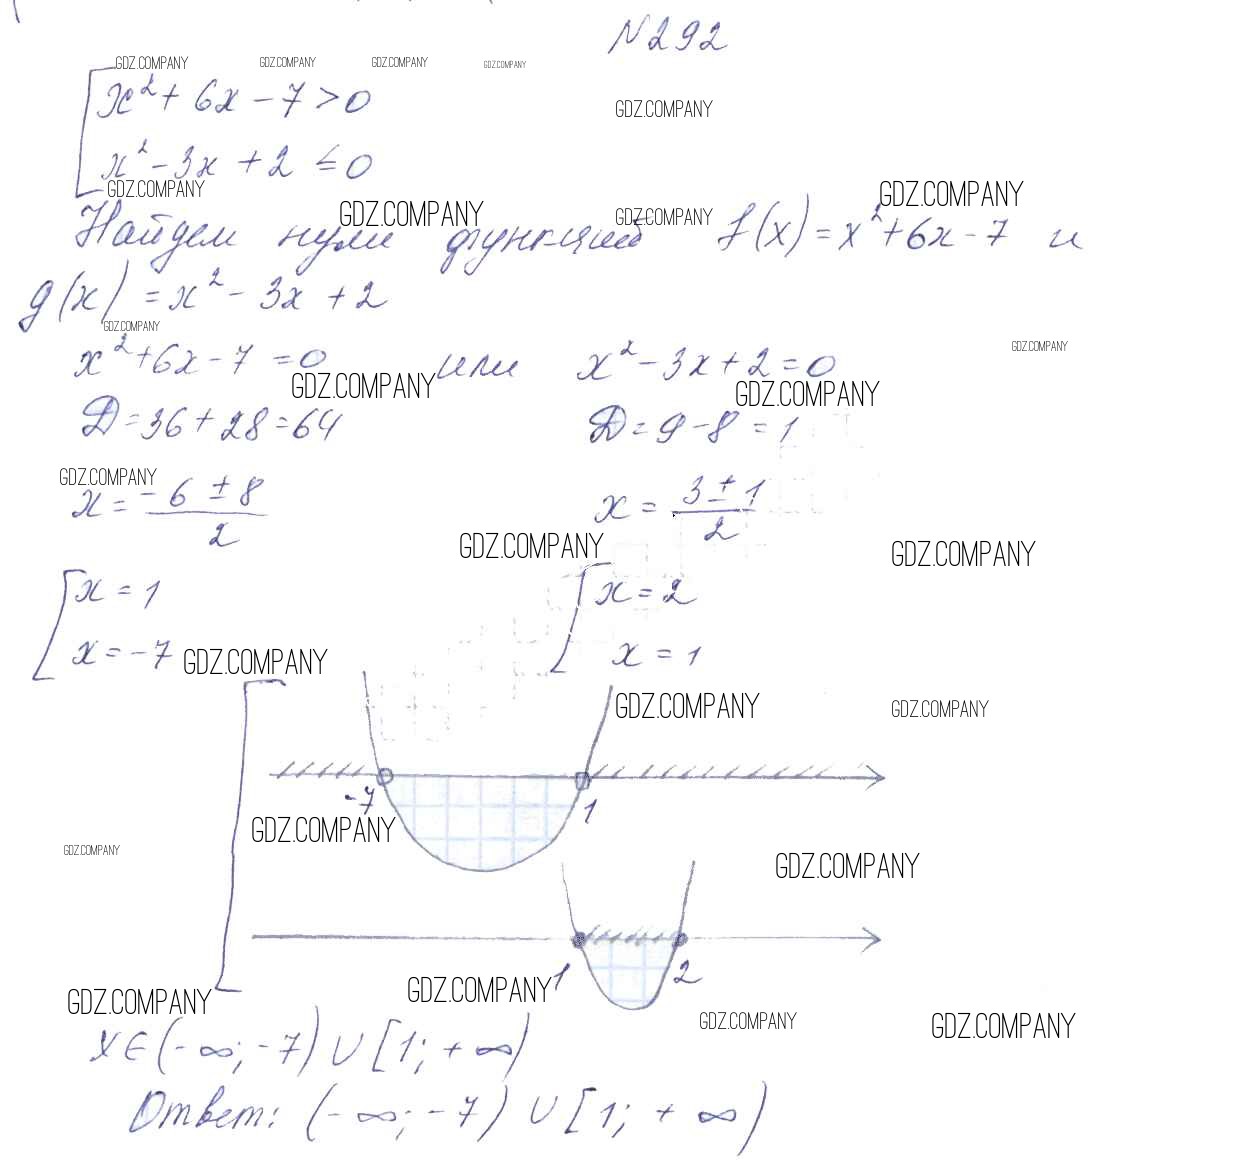 N292
GDZ.COMPANY GDZ.COMPANY GDZ.COMPANY GDZ.COMPANY
x²+ 6x - 7 > 0
GDZ.COMPANY
x² - 3x + 2 ≤ 0
GDZ.COMPANY GDZ.COMPANY GDZ.COMPANY GDZ.COMPANY
Найдем нули функций f(x) = x²+6x-7 и
g(x) = x² - 3x + 2
GDZ.COMPANY GDZ.COMPANY
x²+6x-7 = 0 или x² - 3x + 2 = 0
GDZ.COMPANY GDZ.COMPANY
D = 36 + 28 = 64 D = 9 - 8 = 1
GDZ.COMPANY
x = (-6 ± 8)/2 x = (3 ± 1)/2
GDZ.COMPANY GDZ.COMPANY
x = 1 x = 2
x = -7 x = 1
GDZ.COMPANY
GDZ.COMPANY GDZ.COMPANY
-7 1
GDZ.COMPANY
GDZ.COMPANY GDZ.COMPANY
1 2
GDZ.COMPANY GDZ.COMPANY
GDZ.COMPANY GDZ.COMPANY
x ∈ (-∞; -7) ∪ [1; +∞)
Ответ: (-∞; -7) ∪ [1; +∞)